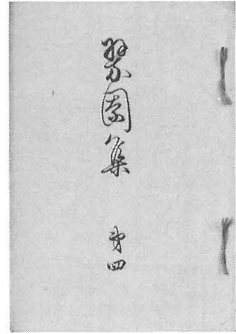 翠園集
第四